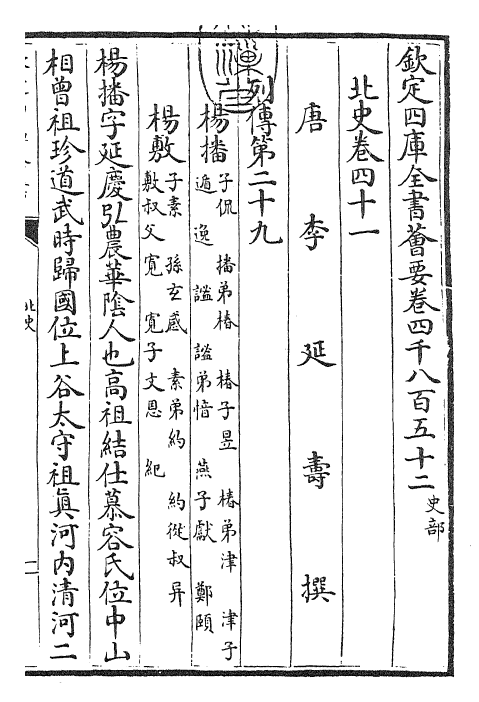 欽定四庫全書薈要卷四千八百五十二 史部
北史卷四十一
唐 李 延 壽 撰
列傳第二十九
楊播 子侃 播弟椿 椿子昱 椿弟津 津子
遁 逸 謐 謐弟愔 燕子獻 鄭頤
楊敷 子素 孫玄感 素弟約 約從叔异
敷叔父寛 寛子文思 紀
楊播字延慶弘農華陰人也高祖結仕慕容氏位中山
相曾祖珍道武時歸國位上谷太守祖真河内清河二
北史